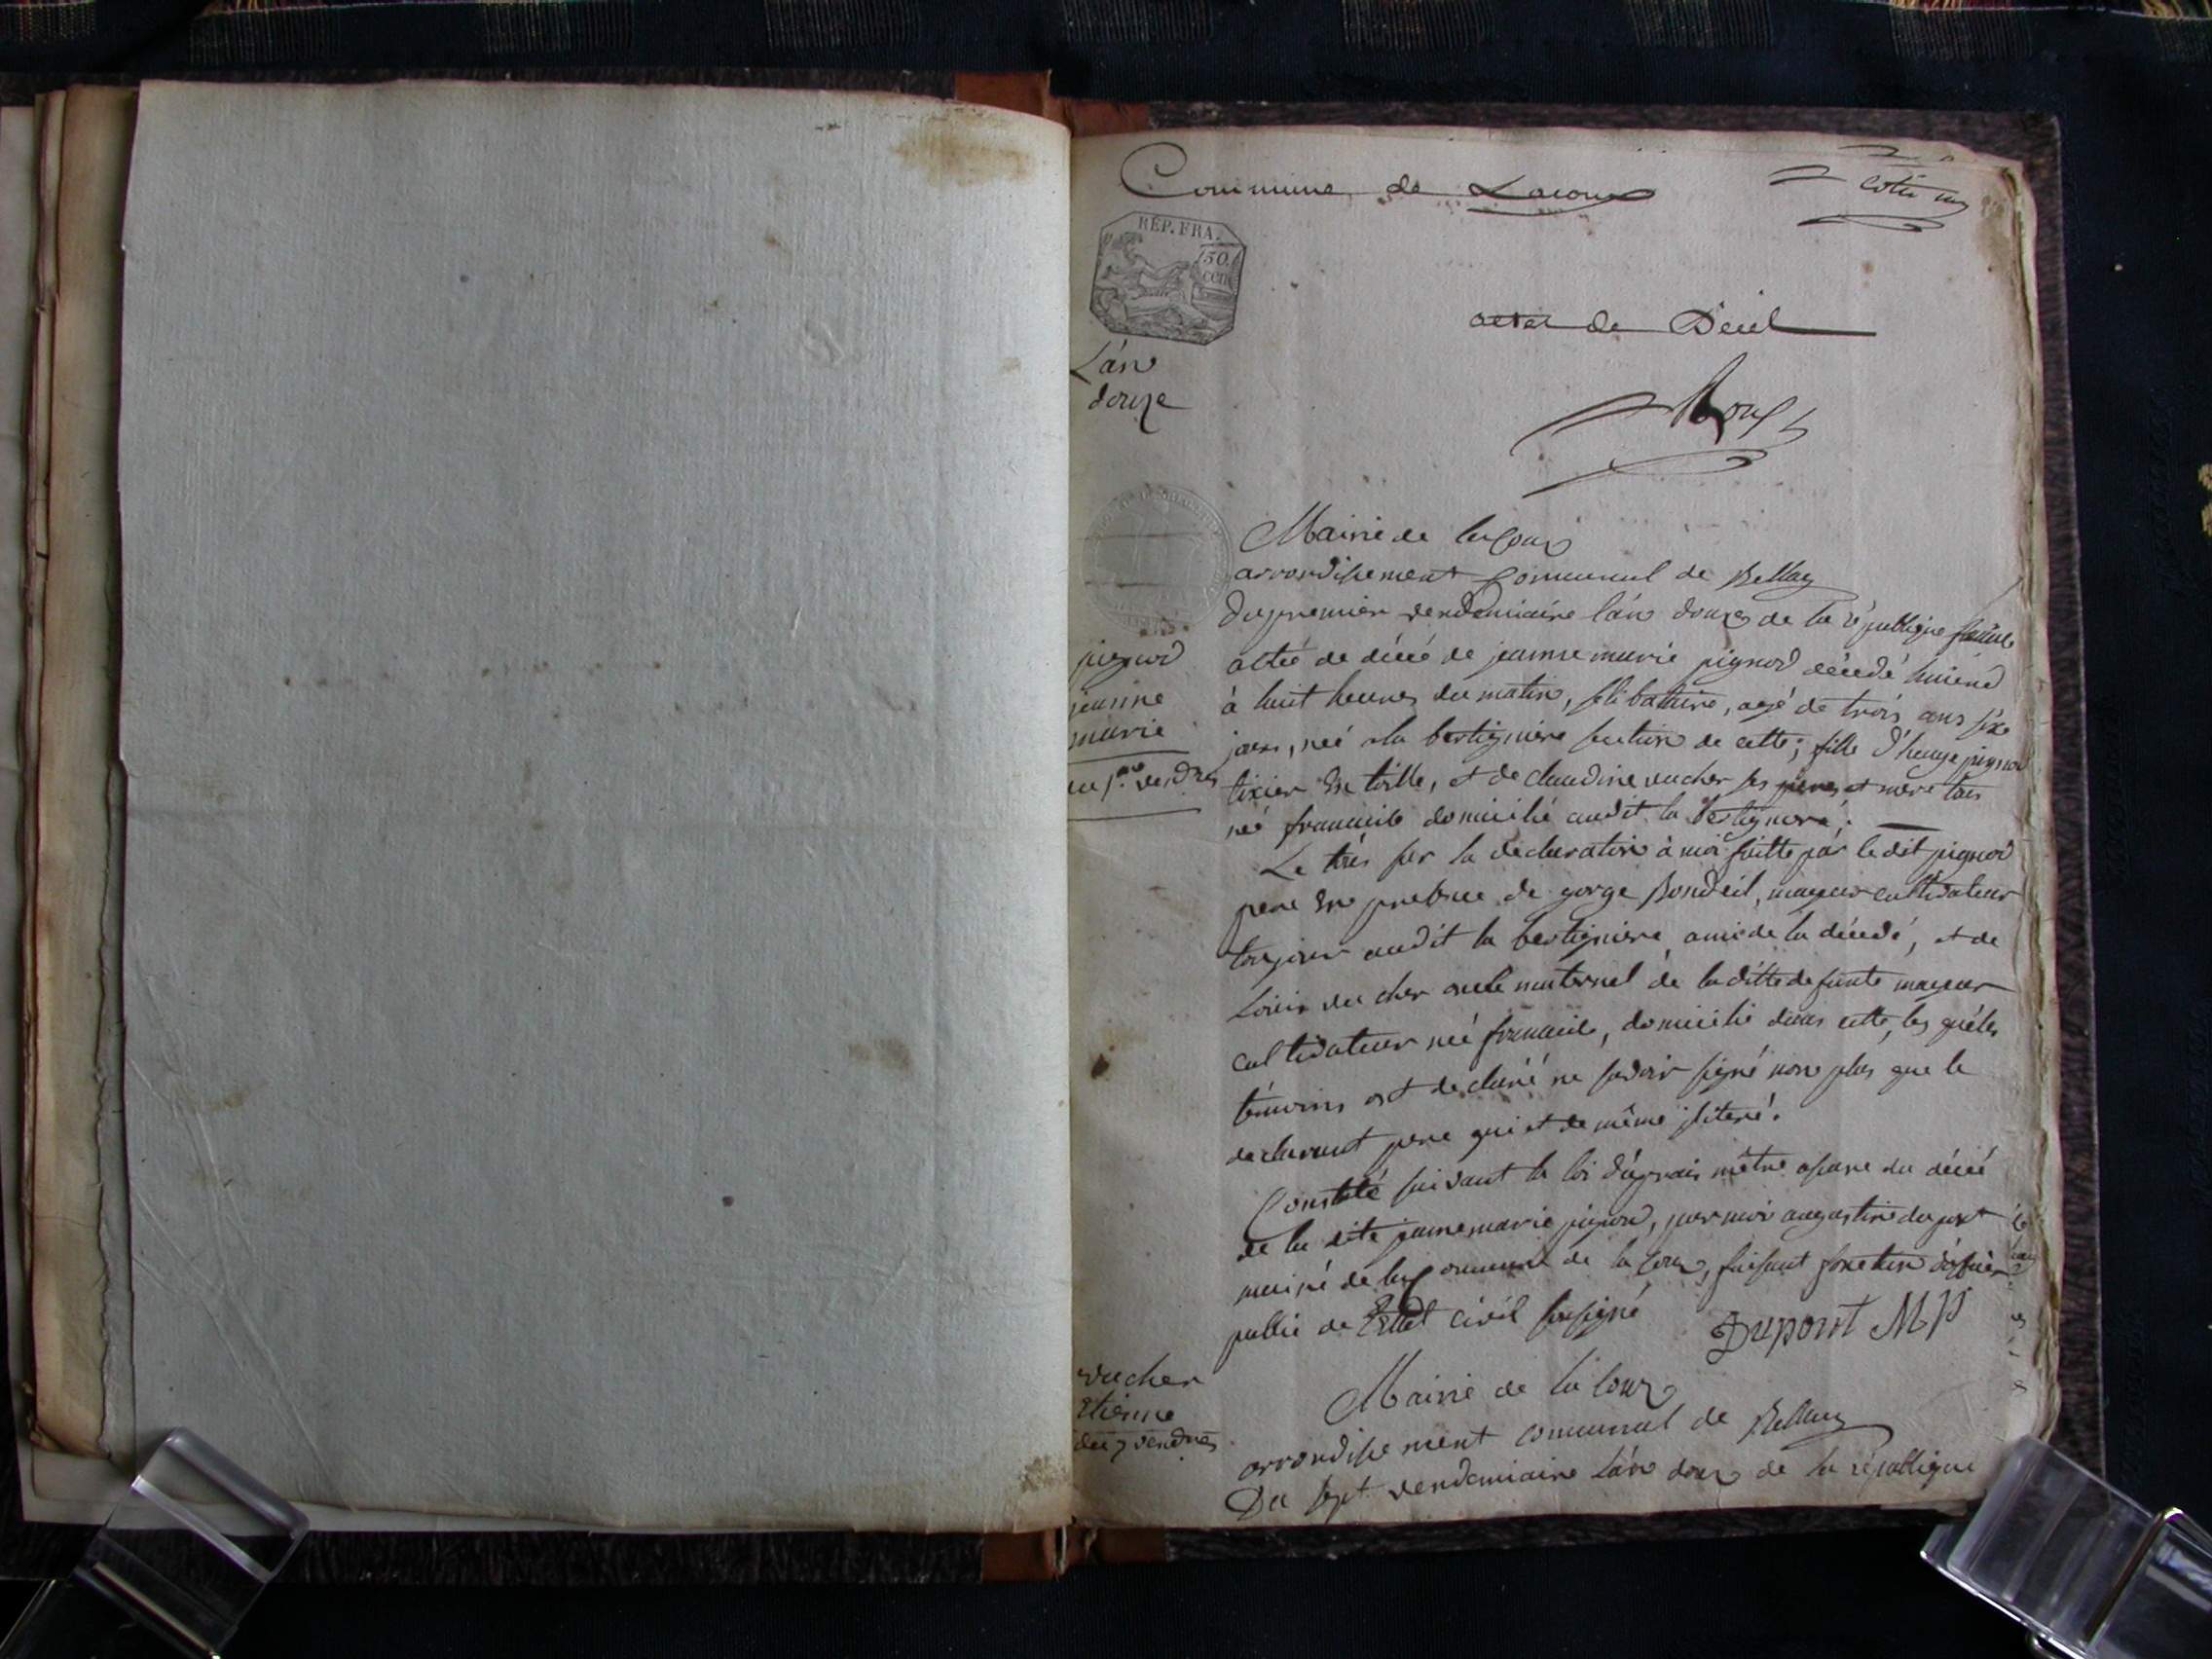 Commune de Lacoux
REP. FRA.
50. cent
acter de Décé
L'an
douze
Mairie de lacoux
arrondissement Communal de Bellay
Du premier vendemiaire l'an douze de la république
pignod
jeanne
marie
du 1.er vendres
acte de décé de jeanne marie pignod décédé
à huit heures du matin, selibataire, agé de trois ans six
jours, née a la bertignière section de cette; fille d'heuge pignod
tixier En toille, et de claudine vucher ses pere et mere tous
né francaile domicilié audit la bertignere;
Le tres sur la declaration à moi faitte par le dit pignod
pere En presence de gorge Bondeil, mayeur cultivateur
toujour audit la bertigniere ami de la décedé, et de
Louis vucher oncle maternel de la ditte defunte mayeur
cultivateur né francaile, domicilié dans cette, les quéls
témoins ont declaré ne savoir signé non plus que le
declarant pere qui et de même iliteré.
Constaté suivant la loi d'aprais m'etre asuré du décé
de la dite jeanne marie pignod, par moi augustin dupont
maire de la Commune de la coux, faisant fonction d'ofisier
public de L'Etat civil sousigné
Dupont M P
vucher
Etienne
du 7 vendres
Mairie de la coux
arrondissement communal de Bellay
Du sept vendemiaire l'an douze de la république